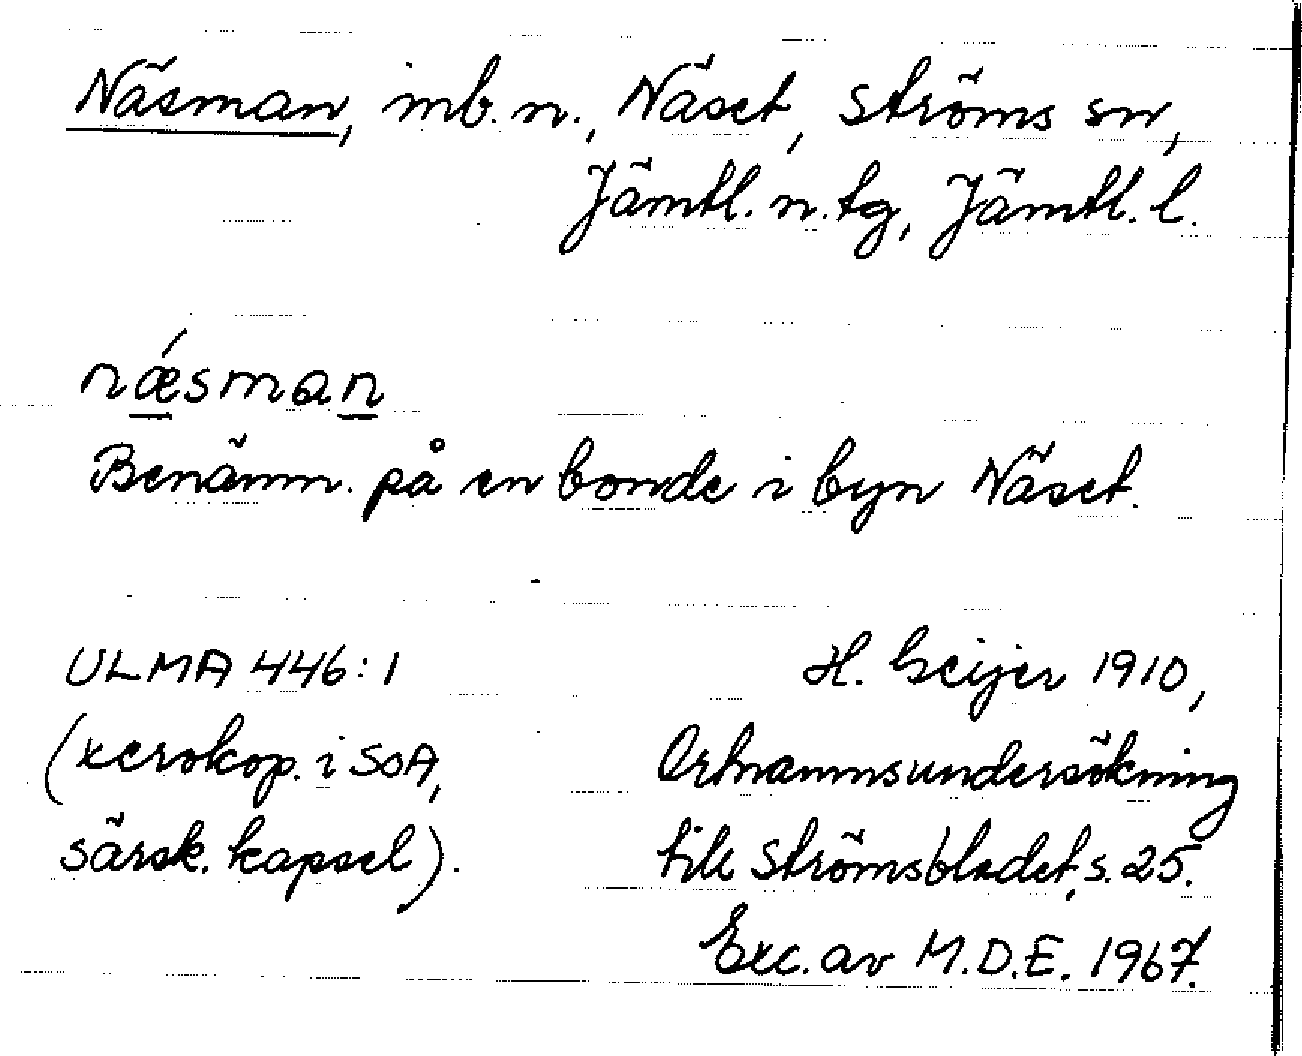 Näsman, inb. n., Näset, Ströms sn,
Jämtl. n. tg, Jämtl. l.
nǽsman
Benämn. på en bonde i byn Näset.
ULMA 446:1
(xerokop. i SOA,
särsk. kapsel).
H. Geijer 1910,
Ortnamnsundersökning
till Strömsbladet, s. 25.
Exc. av M.D.E. 1967.